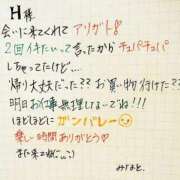 H様
会いに来てくれてアリガト!
2回イキたいって言ったからチュパチュパ
しちゃってたけど…
帰り大丈夫だった?? お買い物行けた??
明日お仕事無理しないでね!!
ほどほどにガンバレー
楽しい時間ありがとう♡
また来てね(._.)
みなと.